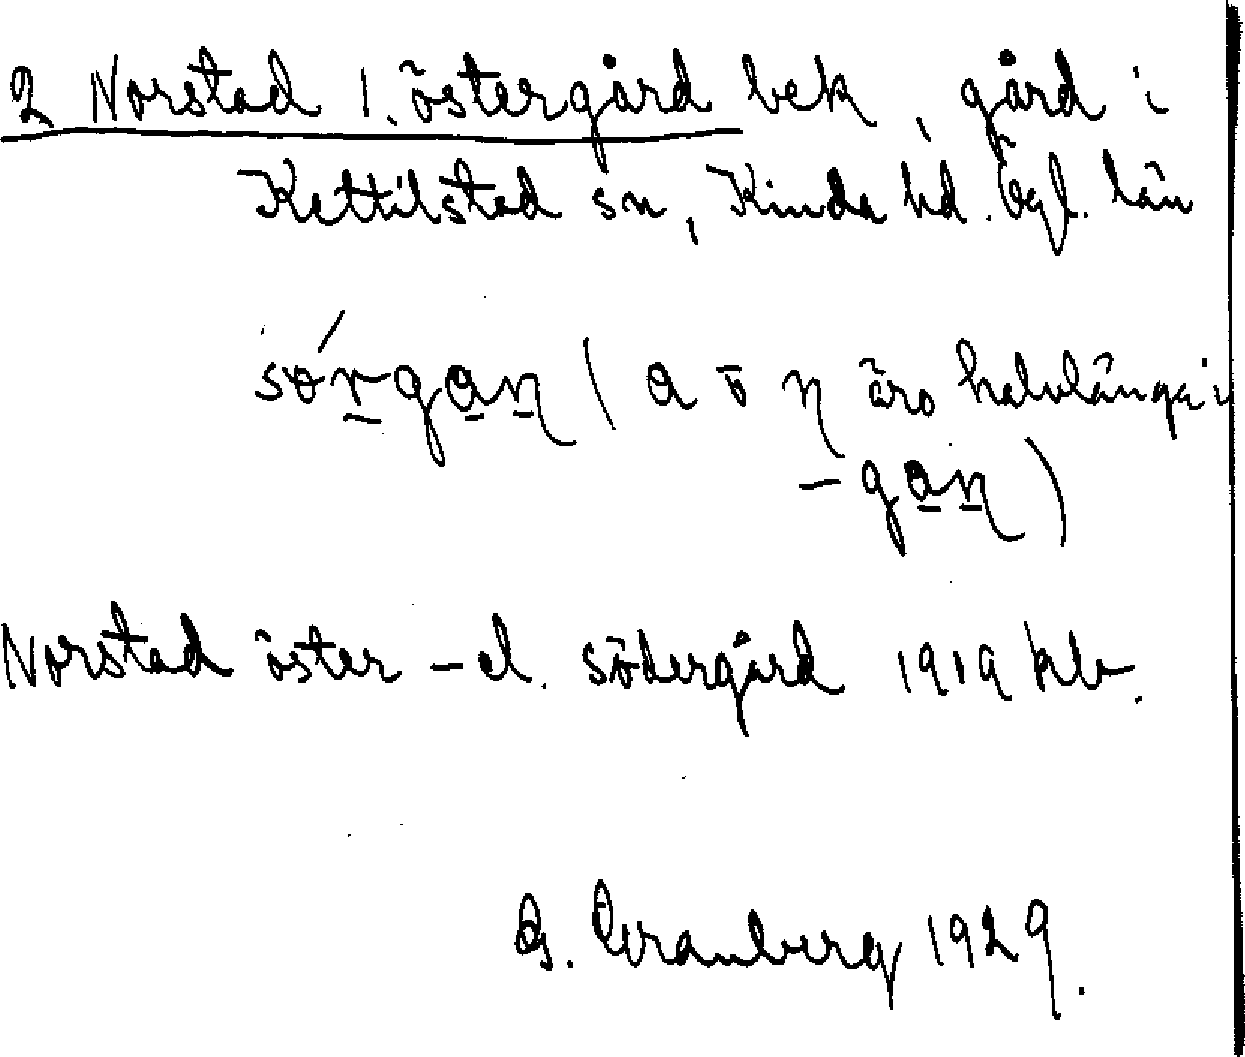 2 Norstad 1. östergård bek, gård i
Kettilstad sn, Kinda hd. Ögl. län
sórgaɳ ( a o ɳ äro halvlånga i
- gaɳ )
Norstad öster - el. södergård 1919 klb.
G. Granberg 1929.